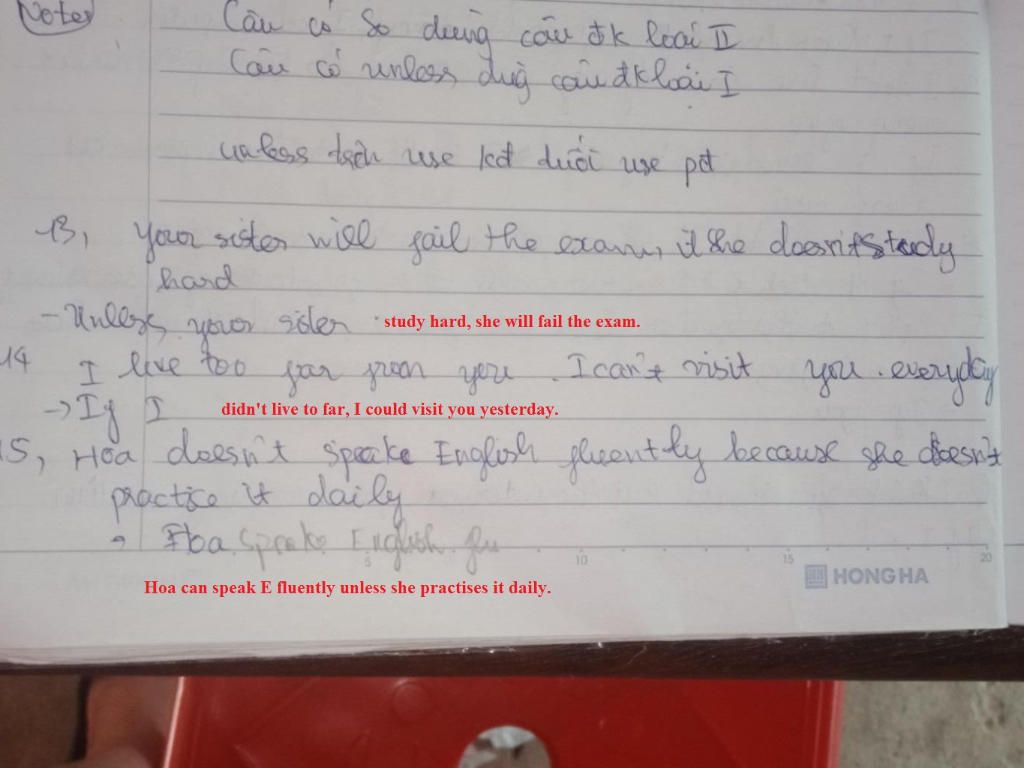 Notes
Câu có So dùng câu đk loại II
Câu có unless, dùg câu đk loại I
unless trên use kđ dưới use pđ
13, Your sister will fail the exam, if she doesn't study
hard
- Unless, your sister study hard, she will fail the exam.
14 I live too far from you. I can't visit you. everyday
-> If I didn't live to far, I could visit you yesterday.
15, Hoa doesn't speake English fluently because she doesn't
practice it daily
Hoa speake English flu
5 10 15 20
HONG HA
Hoa can speak E fluently unless she practises it daily.